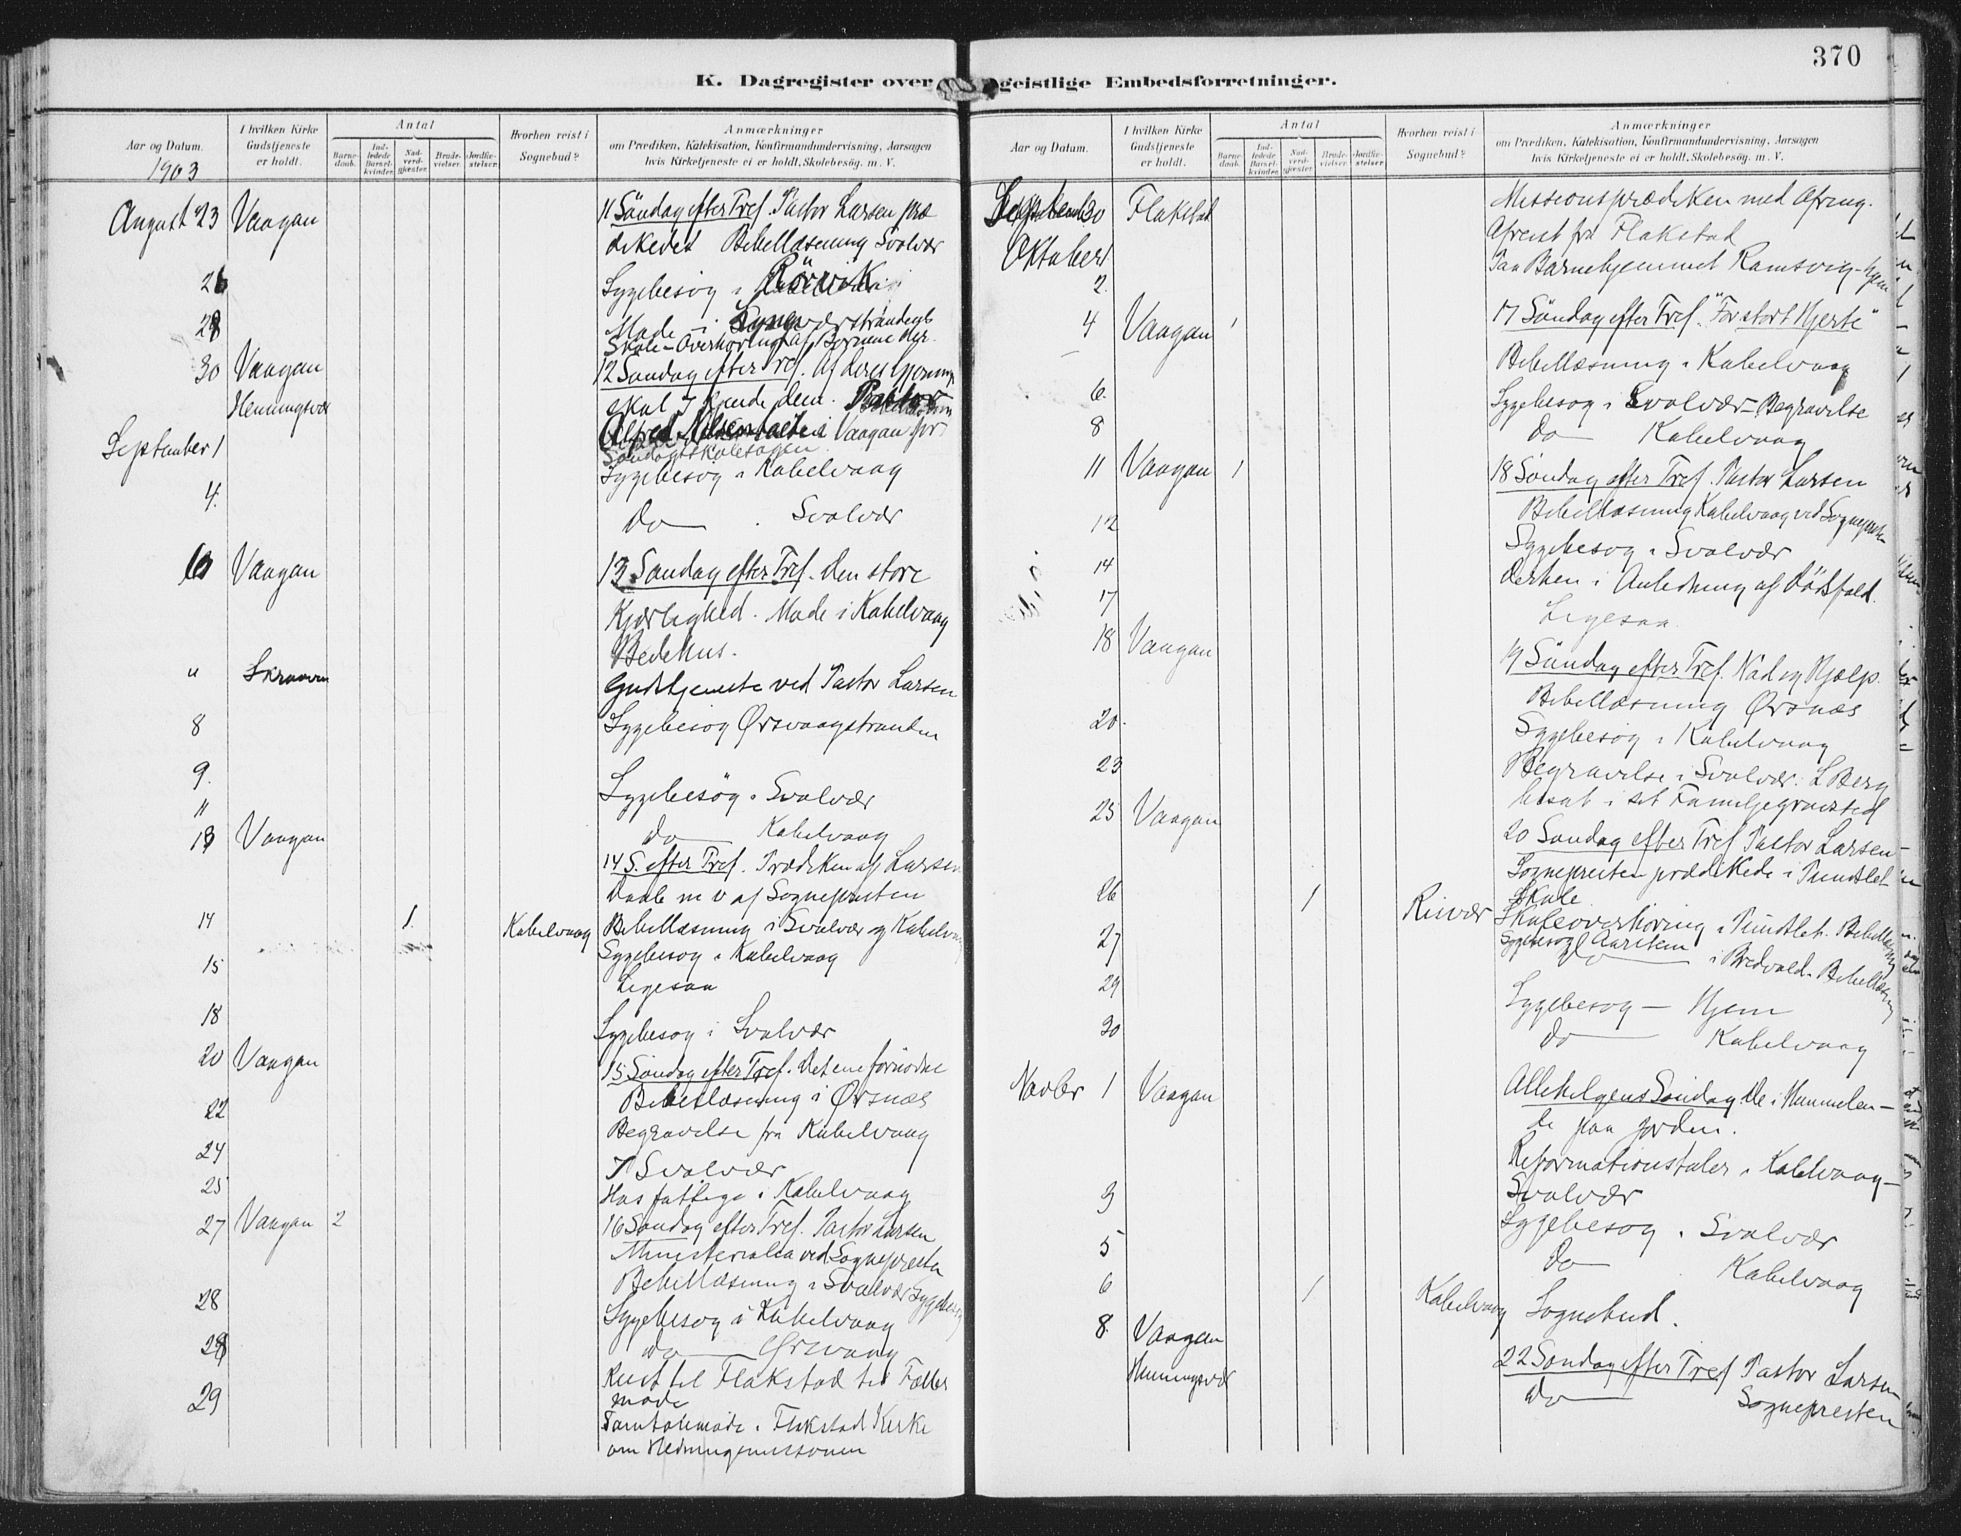 370
K. Dagregister over geistlige Embedsforretninger.
Aar og Datum.
1903
I hvilken Kirke Gudstjeneste er holdt.
Antal
Barnedaab.
Indledede Barselkvinder.
Nadverdgjester.
Brudevielser.
Jordfæstelser.
Hvorhen reist i Sognebud?
Anmærkninger
om Prædiken, Katekisation, Konfirmandundervisning, Aarsagen
hvis Kirketjeneste ei er holdt, Skolebesøg. m. V.
August 23 Vaagan 11 Söndag efter Tref. Pastor Larsen præ
dikedet Bibellæsning Svolvær
26 Sygebesög i Rörvik
28 Möde i
Skole-Overhöring af Börnene der.
30 Vaagan 12 Söndag efter Tref. Af deres Gjerninger
Henningsvær skal I kjende dem. Pastor
Alfred i Vaagan for
Söndagsskolesagen
September 1 Sygebesög i Kabelvaag
4. Do Svolvær
6 Vaagan 13 Söndag efter Tref. Den store
Kjærlighed. Möde i Kabelvaag
Bedehus.
" Skraaven Gudstjeneste ved Pastor Larsen
8 Sygebesög Ørsvaagstranden
9. Sygebesög i Svolvær
11 Do Kabelvaag
13 Vaagan 14 S. efter Tref. Prædiken af Larsen
Daab m v af Sognepresten
14 1. Kabelvaag Bibellæsning i Svolvær og Kabelvaag
Sygebesög i Kabelvaag
15 Ligesaa
18 Sygebesög i Svolvær
20 Vaagan 15 Söndag efter Tref. Det ene fornødne
Bibellæsning i Ørsnæs
22 Begravelse fra Kabelvaag
24 I Svolvær
25 Hos fattige i Kabelvaag
27 Vaagan 2 16 Söndag efter Tref. Pastor Larsen
Ministerialia ved Sognepresten
Bibellæsning i Svolvær Sygebesög
28 Sygebesög i Kabelvaag
28 do Ørsvaag
29 Reist til Flakstad til Fælles
möde
Samtalemöde i Flakstad Kirke
om Hedningemissionen
Aar og Datum.
I hvilken Kirke Gudstjeneste er holdt.
Antal
Barnedaab.
Indledede Barselkvinder.
Nadverdgjester.
Brudevielser.
Jordfæstelser.
Hvorhen reist i Sognebud?
Anmærkninger
om Prædiken, Katekisation, Konfirmandundervisning, Aarsagen
hvis Kirketjeneste ei er holdt, Skolebesøg. m. V.
Septemb 30 Flakstad Missionsprædiken med Ofring.
Afreist fra Flakstad
Oktober 1.
2. Paa Barnehjemmet Ramsvig-hjem
4 Vaagan 1 17 Söndag efter Tref. "For stort Hjerte"
Bibellæsning i Kabelvaag
6. Sygebesög i Svolvær - Begravelse
8 Do Kabelvaag
11 Vaagan 1 18 Söndag efter Tref. Pastor Larsen
Bibellæsning Kabelvaag ved Sognepresten
12 Sygebesög i Svolvær
14 Derhen i Anledning af Dödsfald.
17 Ligesaa
18 Vaagan 19 Söndag efter Tref. Nöd og Hjælp.
Bibellæsning Ørsnæs
20. Sygebesög i Kabelvaag
23 Begravelse i Svolvær. L Berg
bisat i sit Familjegravsted
25 Vaagan 20 Söndag efter Tref Pastor Larsen-
Sognepresten prædikede i Pundslet
Skole
26 1 Risvær Skoleoverhöring i Pundslet. Bibellæsning
27 Sygebesög Do i Bredvold. Bibellæsning
29 Sygebesög - Hjem
30 Do Kabelvaag
Novbr 1 Vaagan Allehelgens Söndag De i Himmelen -
De paa Jorden.
Reformationstaler i Kabelvaag -
Svolvær
3 Sygebesög i Svolvær
5 Do Kabelvaag
6 1 Kabelvaag Sognebud.
8. Vaagan 22 Söndag efter Tref Pastor Larsen
Henningsvær Do Sognepresten